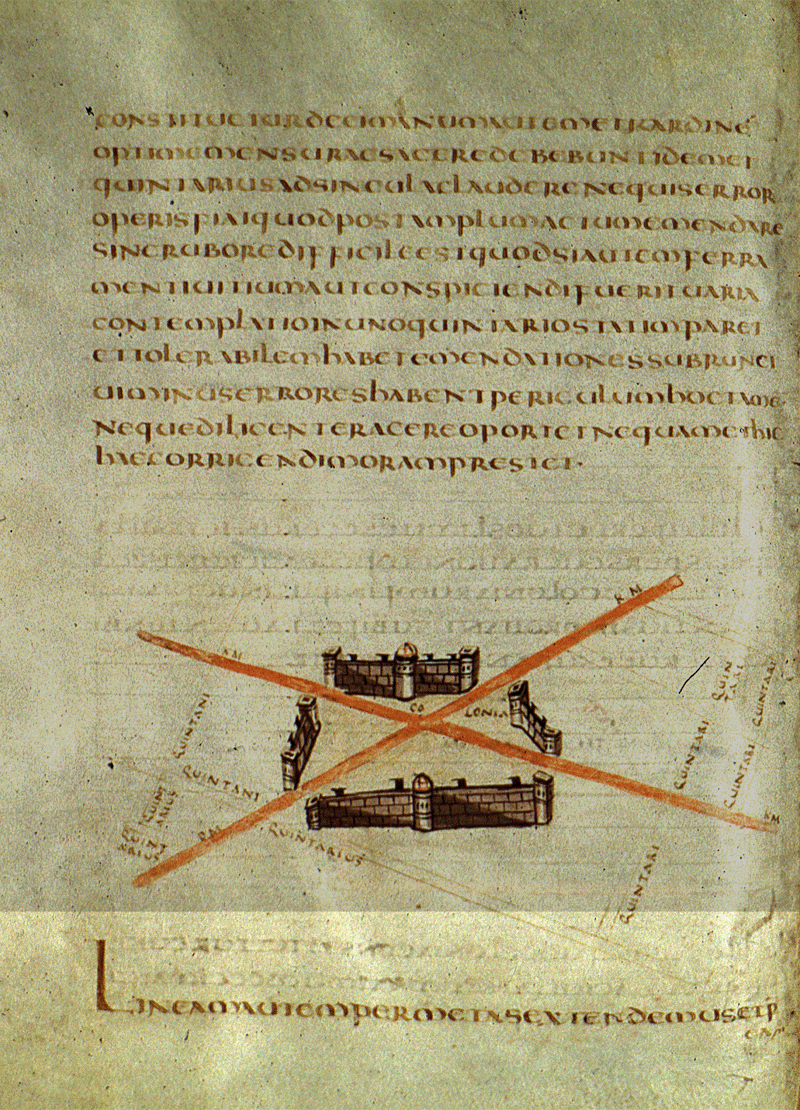 CONSTITUETURDECIMANUMAUTEMETKARDINE
OPTIMEMENSURAESAGEREDEBEBUNTIDEMET
QUINTARIUSADSINGULACLAUDERENEQUISERROR
OPERISFIATQUODPOSTAMPLUMACTUMEMENDARE
SINERUBOREDIFFICILEESTQUODSIAUTEMFERRA
MENTIUITIUMAUTCONSPICIENDIFUERITUARIA
CONTEMPLATIOINUNOQUINTARIOSTATIMPARET
ETTOLERABILEMHABETEMENDATIONESSUBRUNCI
UIMINUSERRORESHABENTPERICULUMHOCTAME
NEQUEDILIGENTERAGEREOPORTETNEQUAMETHIC
HAECORRIGENDIMORAMPRESTET·
KM
KM
QUINTARI
QUINTARI
CO LONIA
QUINTANI
QUINTARI
QUINTANI
QUINTARI
QUINTARIUS
KM
KM
QUINTARIUS
QUINTARIUS
QUINTARI
LINEAMAUTEMPERMETASEXTENDEMUSETP